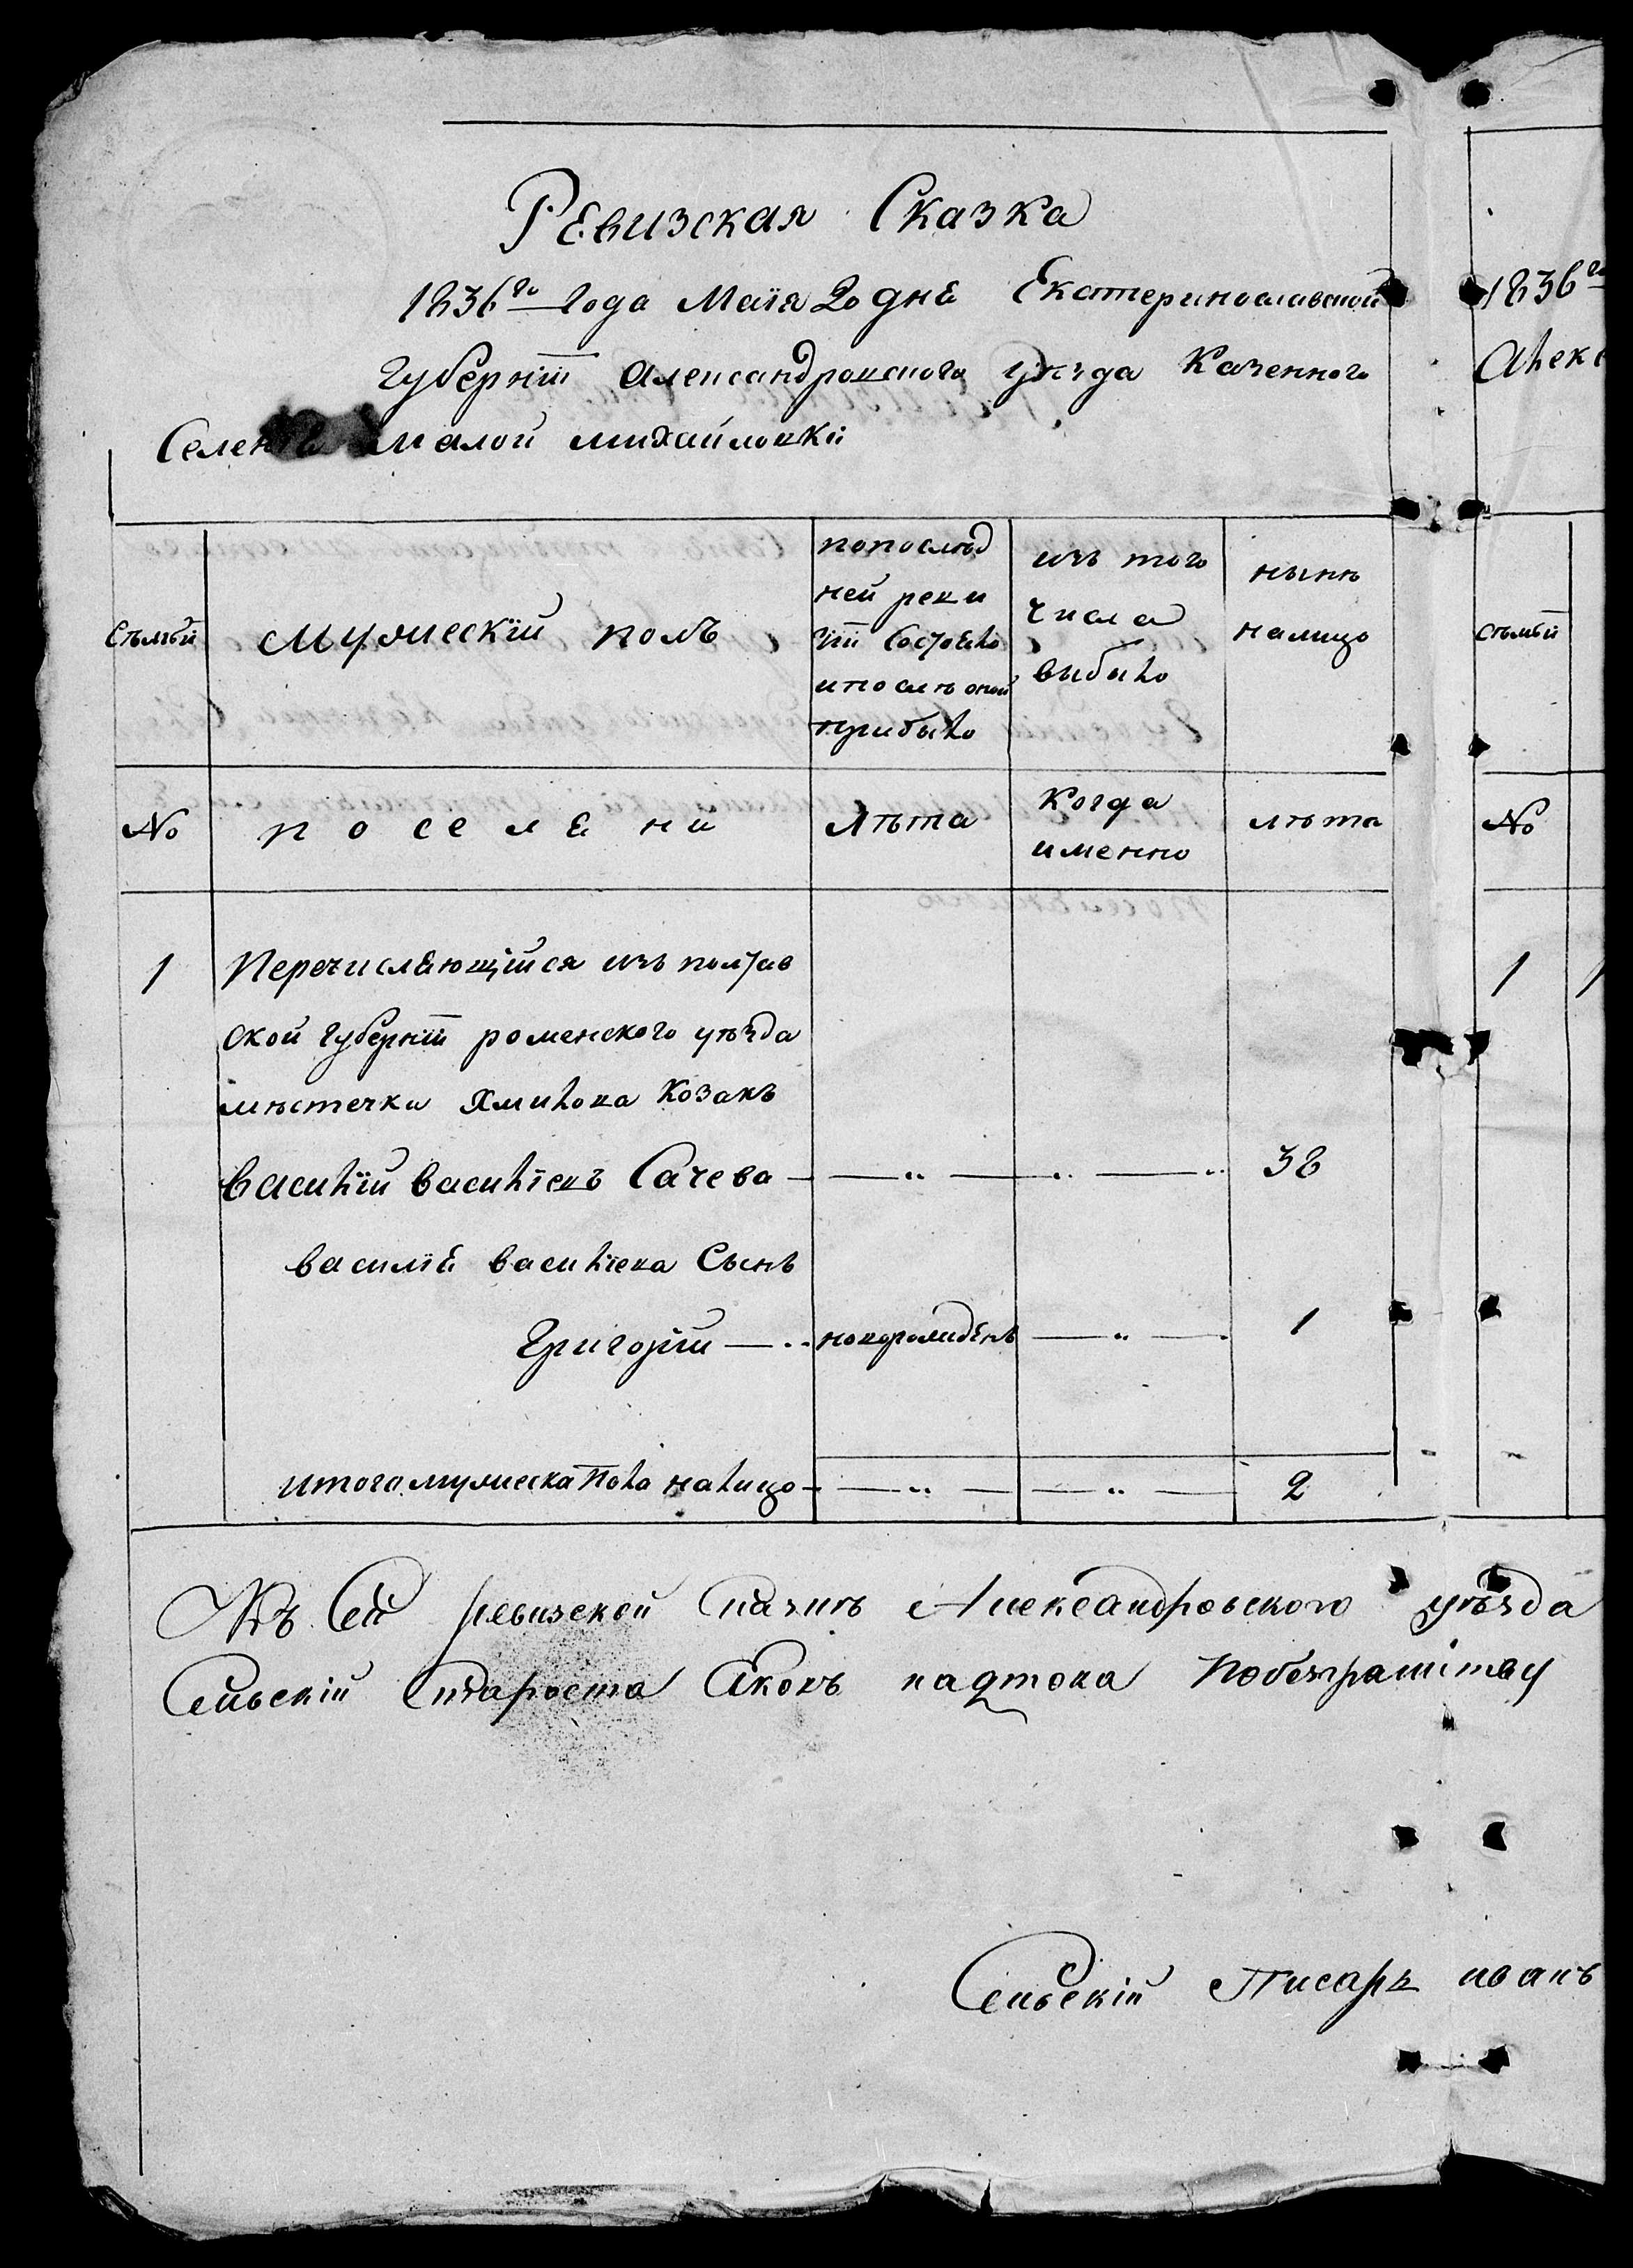 Ревизская Сказка
1836го года Маїя 20 дня Екатеринославской
губернїи Александровского уезда Казенного
Селения малой михайловкїи
Съмьи
мужескїй полъ
попослѣд
ней реви
зїи Состояло
ипослѣ оной
прибыло
изъ того
числа
выбыло
нынѣ
налицо
№
поселяни
Лѣта
Когда
именно
лѣта
1
Перечисляющїйся изъ полтав
ской губернїи роменского уѣзда
мѣстечка Хмилова Козакъ
Василїй Василїевъ Сачева
38
василїя василїева Сынъ
Григорїй
новорожденъ
1
итого мужеска пола налицо
2
Къ Сей ревизской Сказкѣ Александровского уѣзда
Сельскїй Староста Яковъ
Сельскїй Писарь иванъ
1836го
Алекс
Съмьи
№
1